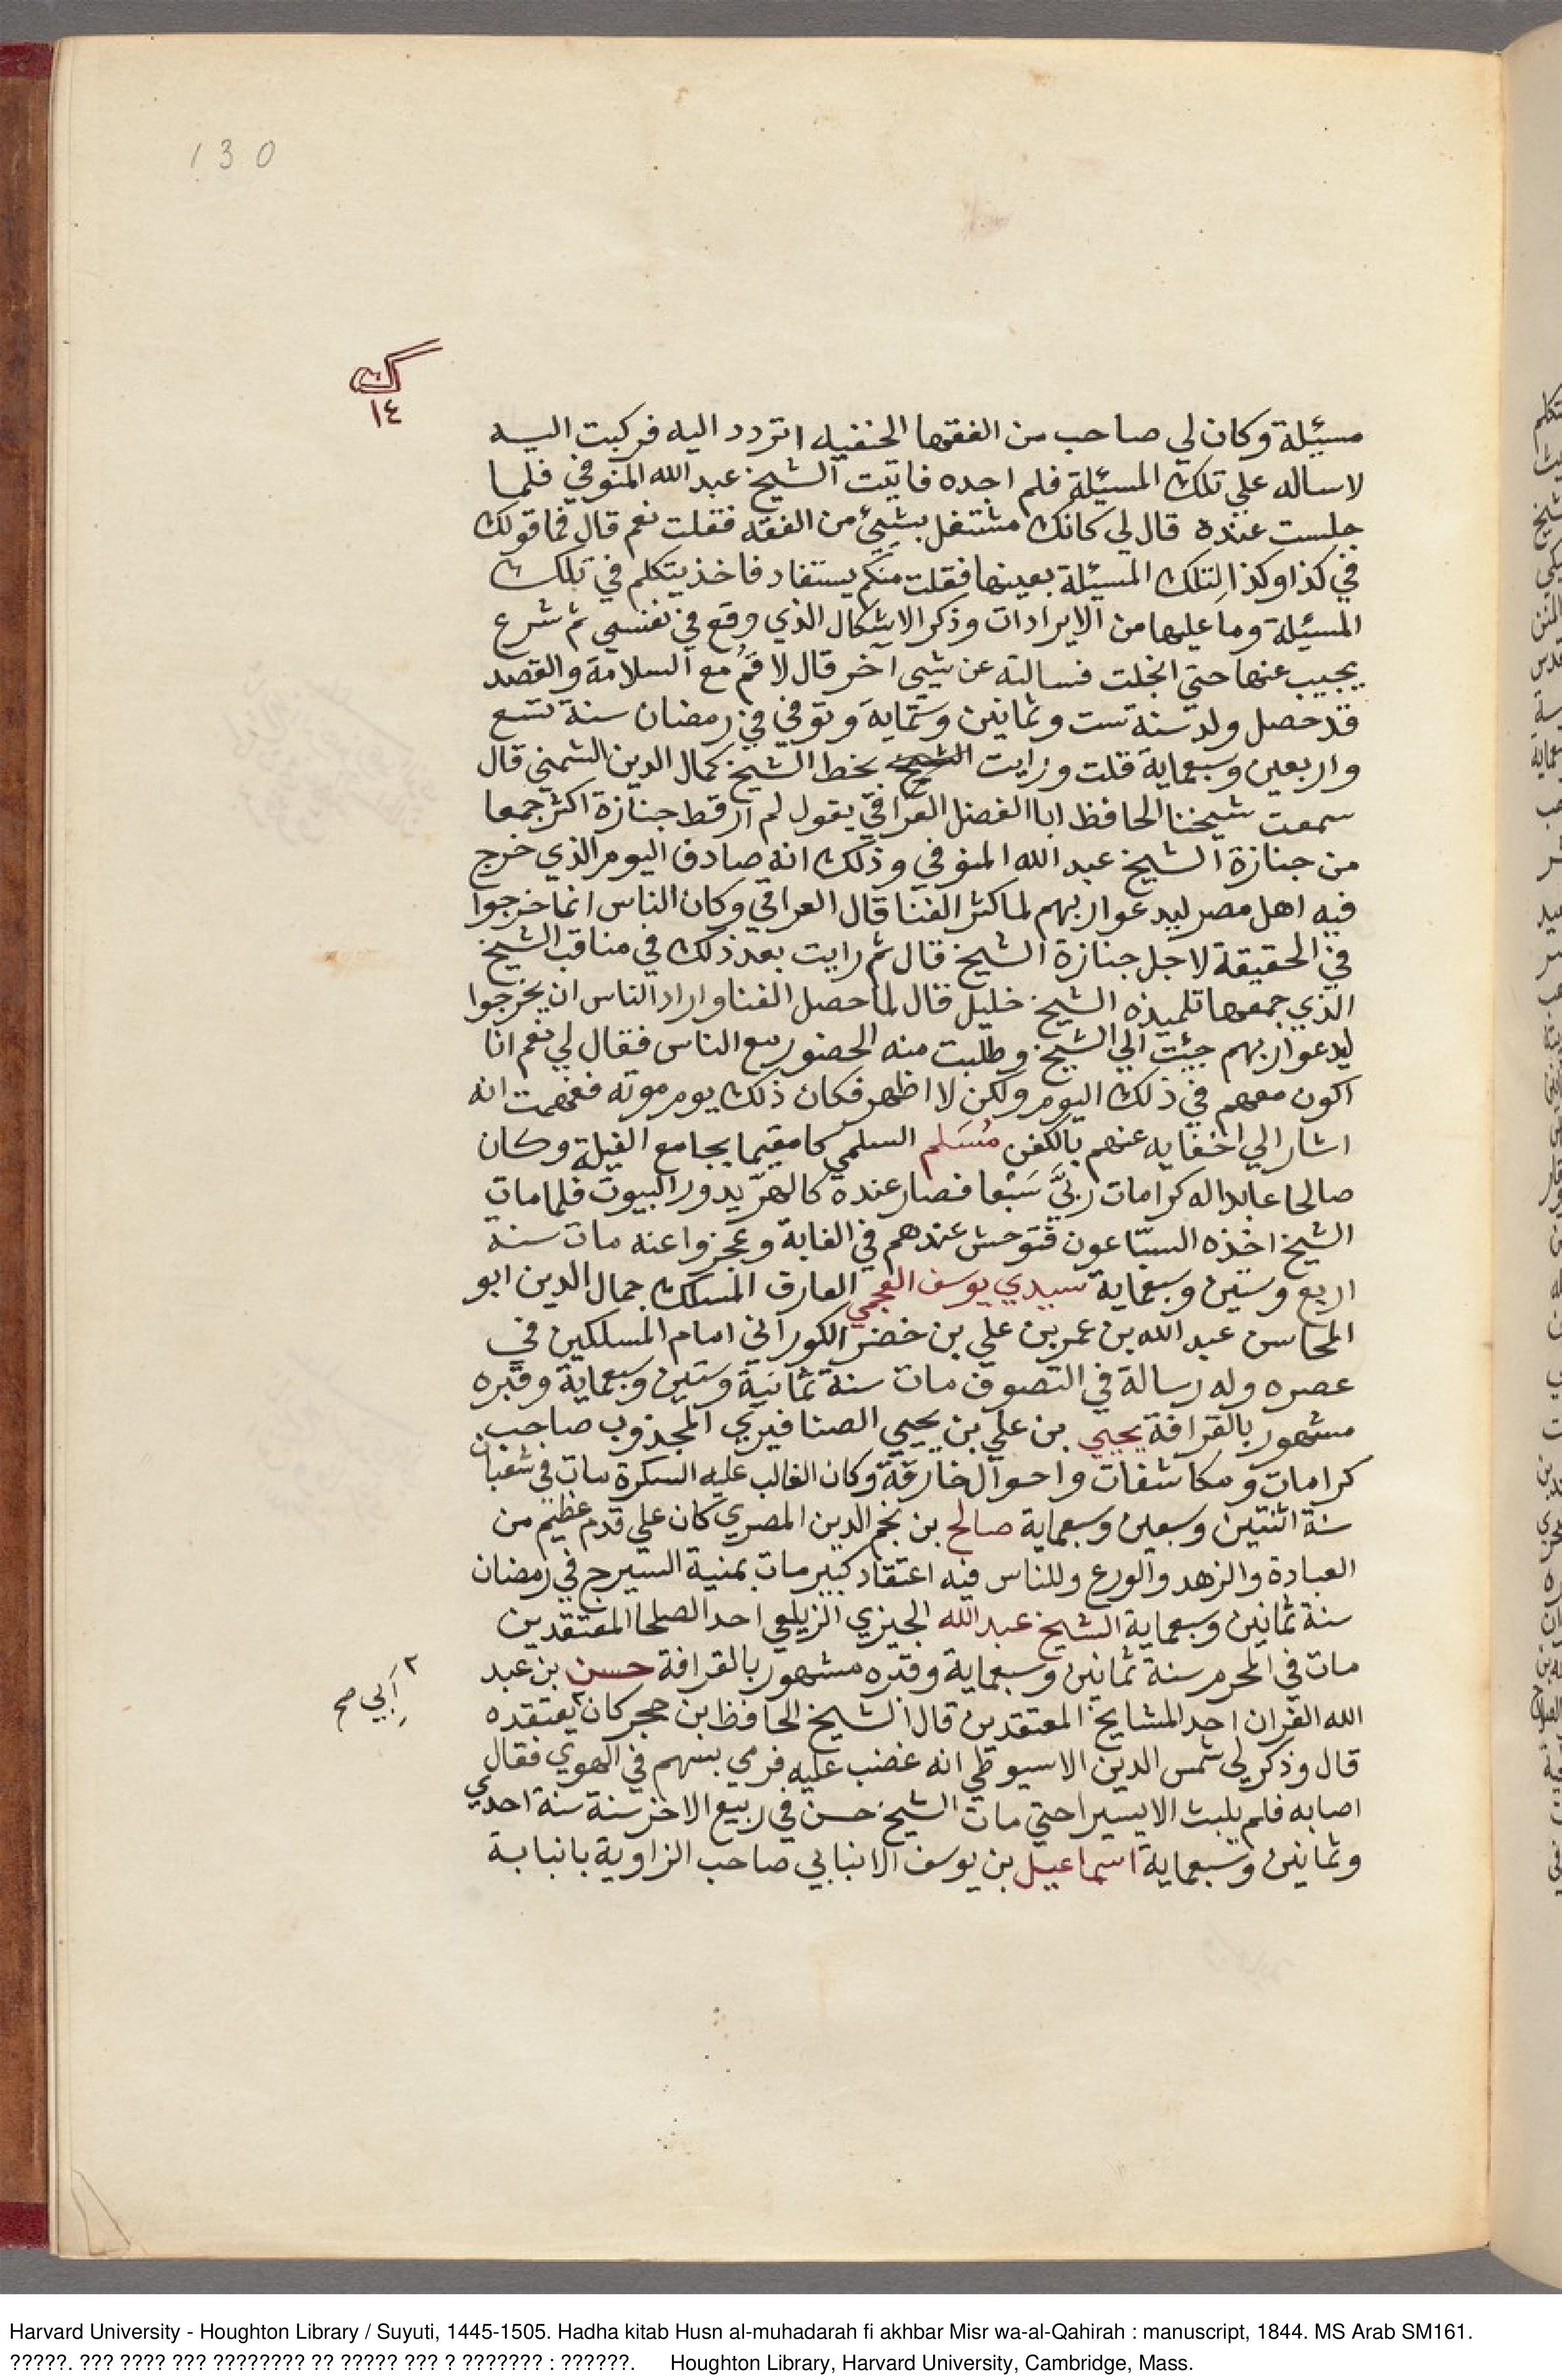 130
ك
١٤
مسيئلة وكان لي صاحب من الفقها الحنفيه اتردد اليه فركبت اليه
لاساله علي تلك المسيئلة فلم اجده فاتيت الشيخ عبد الله المنوفي فلما
جلست عنده قال لي كانك مشتغل بشيئ من الفقه فقلت نعم قال فما قولك
في كذا وكذا لتلك المسيئلة بعينها فقلت منكم يستفاد فاخذ يتكلم في تلك
المسيئلة وما عليها من الايرادات وذكر الاشكال الذي وقع في نفسي ثم شرع
يجيب عنها حتي انجلت فسالته عن شيي آخر قال لا قم مع السلامة والقصد
قد حصل ولد سنة ست وثمانين وستماية وتوفي في رمضان سنة تسع
واربعين وسبعماية قلت ورايت الشيخ بخط الشيخ كمال الدين الشمني قال
سمعت شيخنا الحافظ ابا الفضل العراقي يقول لم ار قط جنازة اكثر جمعا
من جنازة الشيخ عبد الله المنوفي وذلك انه صادف اليوم الذي خرج
فيه اهل مصر ليدعوا ربهم لما كثر الفنا قال العراقي وكان الناس انما خرجوا
في الحقيقة لاجل جنازة الشيخ قال ثم رايت بعد ذلك في مناقب الشيخ
الذي جمعها تلميذه الشيخ خليل قال لما حصل الفنا واراد الناس ان يخرجوا
ليدعوا ربهم جيئت الي الشيخ وطلبت منه الحضور مع الناس فقال لي نعم انا
اكون معهم في ذلك اليوم ولكن لا اظهر فكان ذلك يوم موته ففهمت انه
اشار الي اخفايه عنهم بالكفن مُسَلم السلمي كا مقيما بجامع الفيلة وكان
صالحا عابدا له كرامات ربَّي سَبُعا فصار عنده كالهرّ يدور البيوت فلما مات
الشيخ اخذه السبّاعون فتوحش عندهم في الغابة وعجزوا عنه مات سنة
اربع وستين وسبعماية سيدي يوسف العجمي العارف المسلك جمال الدين ابو
المحاسن عبد الله بن عمر بن علي بن خضر الكوراني امام المسلكين في
عصره وله رسالة في التصوف مات سنة ثمانية وستين وسبعماية وقبره
مشهور بالقرافة يحيي بن علي بن يحيي الصنافيري المجذوب صاحب
كرامات ومكاشفات واحوال خارقة وكان الغالب عليه السكرة مات في شعبان
سنة اثنتين وسبعين وسبعماية صالح بن نجم الدين المصري كان علي قدم عظيم من
العبادة والزهد والورع وللناس فيه اعتقاد كبير مات بمنية السيرج في رمضان
سنة ثمانين وسبعماية الشيخ عبد الله الجيزي الزيلعي احد الصلحا المعتقدين
مات في المحرم سنة ثمانين وسبعماية وقبره مشهور بالقرافة حسن بن عبد
الله الفران احد المشايخ المعتقدين قال الشيخ الحافظ بن حجر كان ٢ يعتقده
٢ اَبِي صح
قال وذكر لي شمس الدين الاسيوطي انه غضب عليه فرمي بسهم في الهوي فقال
اصابه فلم يلبث الا يسيرا حتي مات الشيخ حسن في ربيع الاخر سنة سنة احدي
وثمانين وسبعماية اسماعيل بن يوسف الانبابي صاحب الزاوية بانبابة
Harvard University - Houghton Library / Suyuti, 1445-1505. Hadha kitab Husn al-muhadarah fi akhbar Misr wa-al-Qahirah : manuscript, 1844. MS Arab SM161.
?????. ??? ???? ??? ???????? ?? ????? ??? ? ??????? : ??????. Houghton Library, Harvard University, Cambridge, Mass.